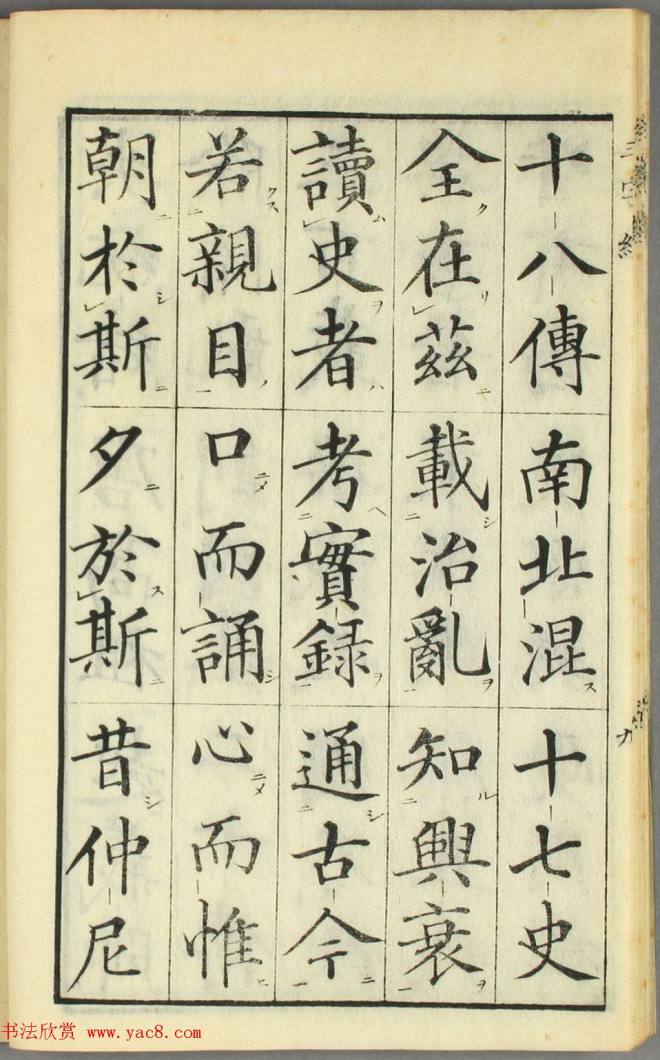 十八傳南北混十七史
全在茲載治亂知興衰
讀史者考實録通古今
若親目口而誦心而惟
朝於斯夕於斯昔仲尼
三字經
九
书法欣赏 www.yac8.com